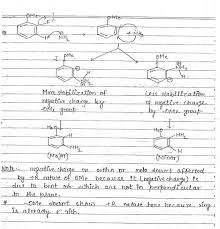 OMe
OMe
NH₂
NH₂
I
OMe
OMe
NH₂
More stabilization of
negative charge by
-OMe group
Less stabilization
of negative charge by
-OMe group
H₂N
NH₂
H
H
(Major)
(Minor)
Note:- negative charge on ortho or meta doesnt affected
by +R nature of OMe because it (negative charge) is
due to bent orb which are not in perpendicular
to the plane.
* -OMe doesnt shows +R nature here because ring
is already e⁻ rich.